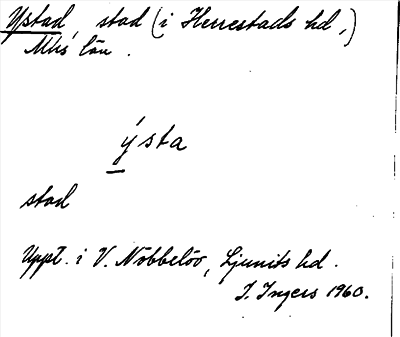 Ystad, stad (i Herrestads hd,)
Mhs län.
ýsta
stad
Uppt. i V. Nöbbelöv, Ljunits hd.
I. Ingers 1960.